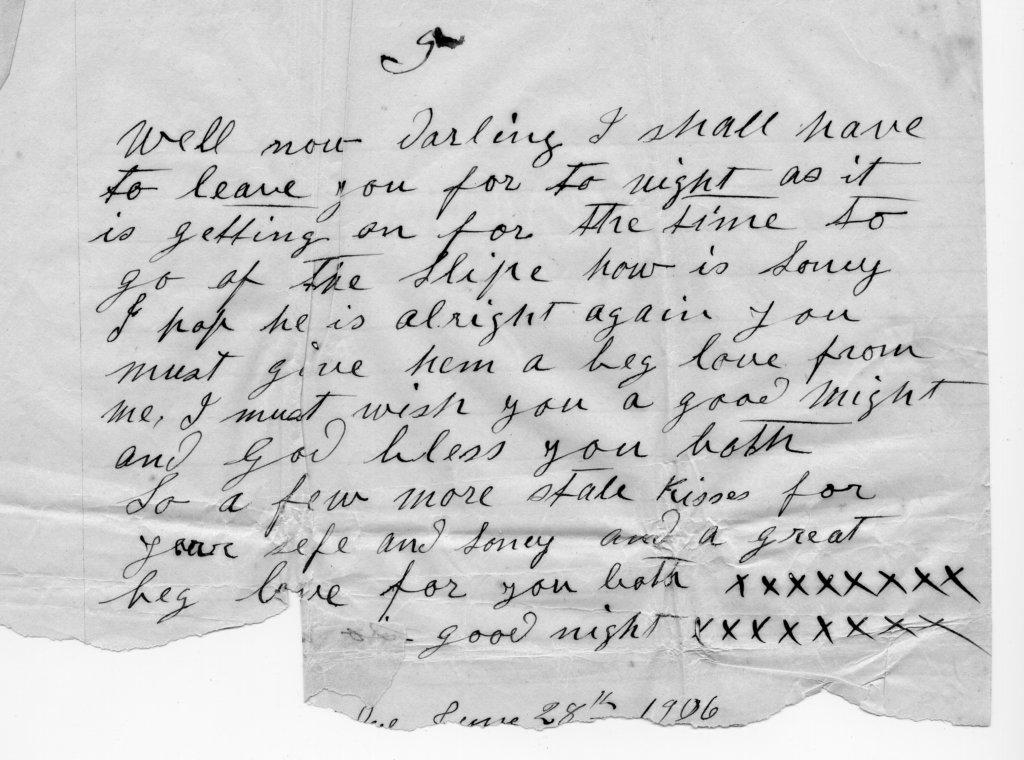 Well now Darling I shall have
to leave you for to night as it
is getting on for the time to
go of the slipe how is Soney
I hop he is alright again you
must give hem a beg love from
me, I must wish you a good night
and God bless you both
So a few more stale kisses for
your sefe and Soney and a great
beg love for you both xxxxxxxxx
good night xxxxxxxxx
June 28th 1906